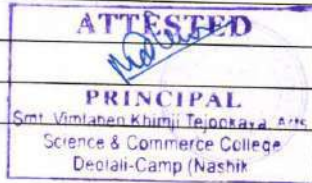 ATTESTED
PRINCIPAL
Smt. Vimlaben Khimji Tejookaya Arts
Science & Commerce College
Deolali-Camp (Nashik